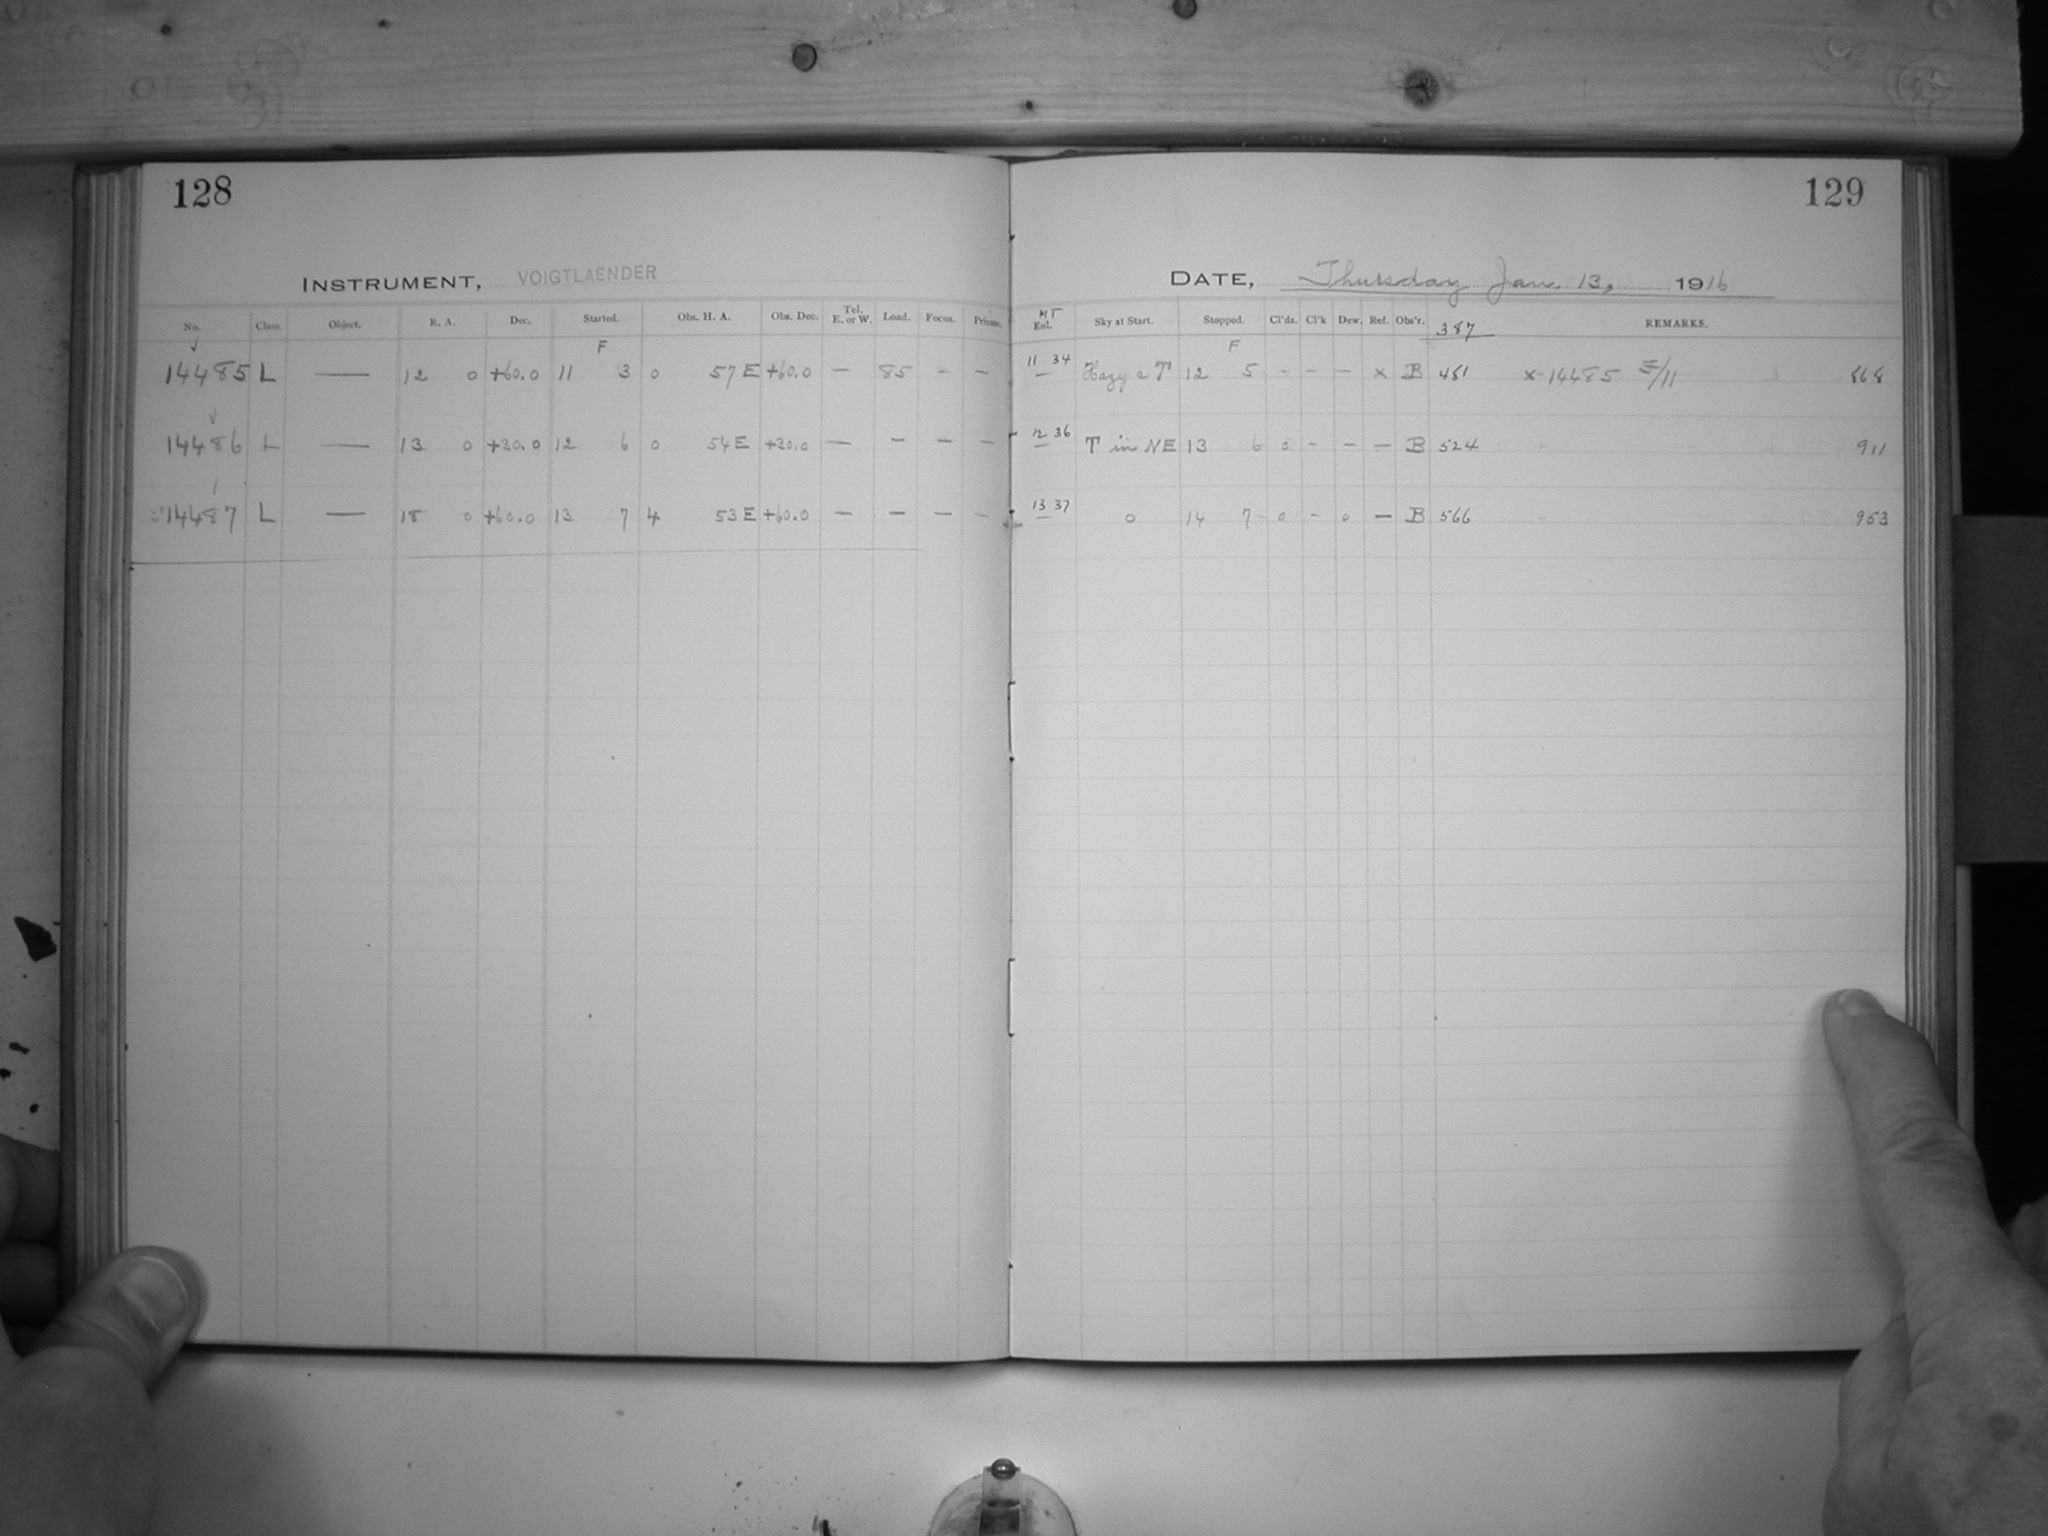 128
129
INSTRUMENT, VOIGTLAENDER
DATE, Thursday Jan. 13, 1916
No. Class. Object. R. A. Dec. Started. Obs. H. A. Obs. Dec. Tel. E. or W. Load. Focus. Prisms. MT Sky at Start. Stopped. Cl'ds. Cl'k Dew. Ref. Obs'r. 387 REMARKS.
F F
14485 L — 12 0 +60.0 11 3 0 57 E +60.0 — 85 - - 11 34 Hazy & T 12 5 - - - x B 481 x 14485 868
14486 L — 13 0 +30.0 12 6 0 54 E +30.0 — - - - 12 36 T in NE 13 6 0 - - - B 524 911
14487 L — 18 0 +60.0 13 7 4 53 E +60.0 — - - - 13 37 0 14 7 0 - 0 - B 566 953